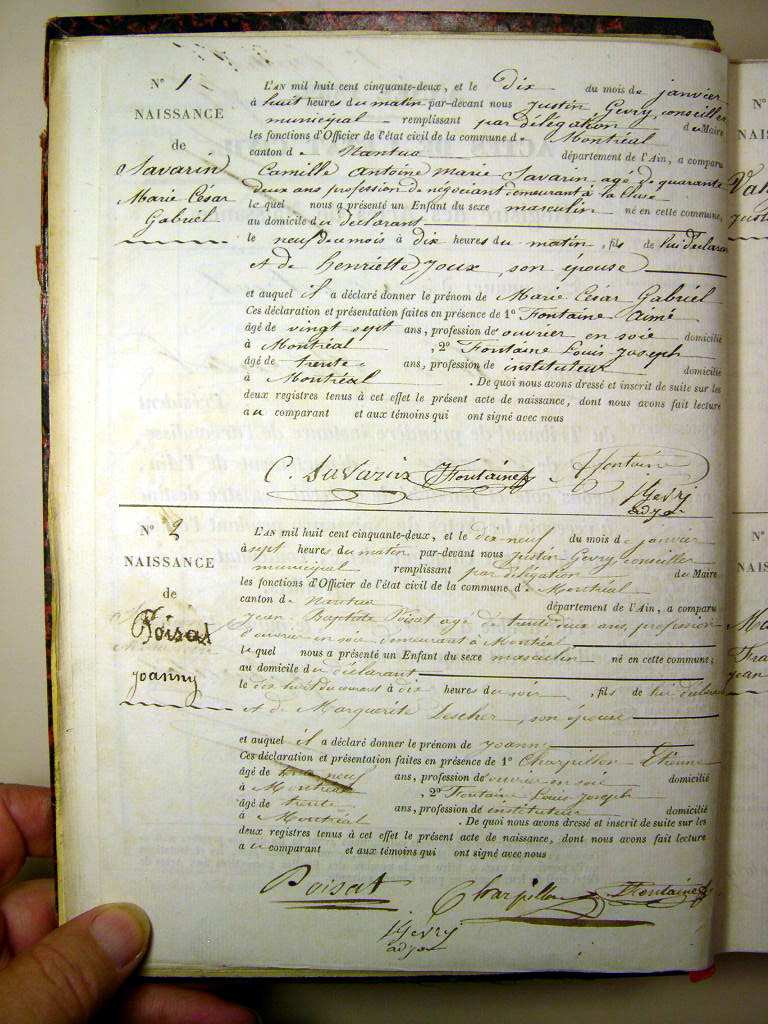 N° 1
NAISSANCE
de
Savarin
Marie César
Gabriel
L'AN mil huit cent cinquante-deux, et le Dix du mois de janvier
à huit heures du matin par-devant nous Justin Gevry, conseiller
municipal remplissant par délégation de Maire
les fonctions d'Officier de l'état civil de la commune de Montréal
canton de Nantua département de l'Ain, a comparu
Camille Antoine Marie Savarin agé de quarante
deux ans profession de négociant demeurant à la Cluse
lequel nous a présenté un Enfant du sexe masculin né en cette commune,
au domicile du déclarant
le neuf du mois à dix heures du matin, fils de lui déclarant
et de henriette Joux, son épouse
et auquel il a déclaré donner le prénom de Marie César Gabriel
Ces déclaration et présentation faites en présence de 1° Fontaine Aimé
âgé de vingt sept ans, profession de ouvrier en soie domicilié
à Montréal , 2° Fontaine Louis Joseph
âgé de trente ans, profession de instituteur domicilié
à Montréal . De quoi nous avons dressé et inscrit de suite sur les
deux registres tenus à cet effet le présent acte de naissance, dont nous avons fait lecture
au comparant et aux témoins qui ont signé avec nous
C. Savarin Fontaine fontaine
J Gevry
adj
N° 2
NAISSANCE
de
Poisat
Joanny
L'AN mil huit cent cinquante-deux, et le dix neuf du mois de janvier
à sept heures du matin par-devant nous Justin Gevry, conseiller
municipal remplissant par délégation de Maire
les fonctions d'Officier de l'état civil de la commune de Montréal
canton de Nantua département de l'Ain, a comparu
Jean Baptiste Poisat agé de trente deux ans, profession
d'ouvrier en soie demeurant à Montréal
lequel nous a présenté un Enfant du sexe masculin né en cette commune;
au domicile du déclarant
le dix huit du courant à dix heures du soir , fils de lui déclarant
et de Marguerite Lescher, son épouse
et auquel il a déclaré donner le prénom de Joanny
Ces déclaration et présentation faites en présence de 1° Charpillon Etienne
âgé de neuf ans, profession de ouvrier en soie domicilié
à Montréal , 2° Fontaine Louis Joseph
âgé de trente ans, profession de instituteur domicilié
à Montréal . De quoi nous avons dressé et inscrit de suite sur les
deux registres tenus à cet effet le présent acte de naissance, dont nous avons fait lecture
au comparant et aux témoins qui ont signé avec nous
Poisat Charpillon Fontaine
J Gevry
adj
N°
NAIS
N°
NAIS